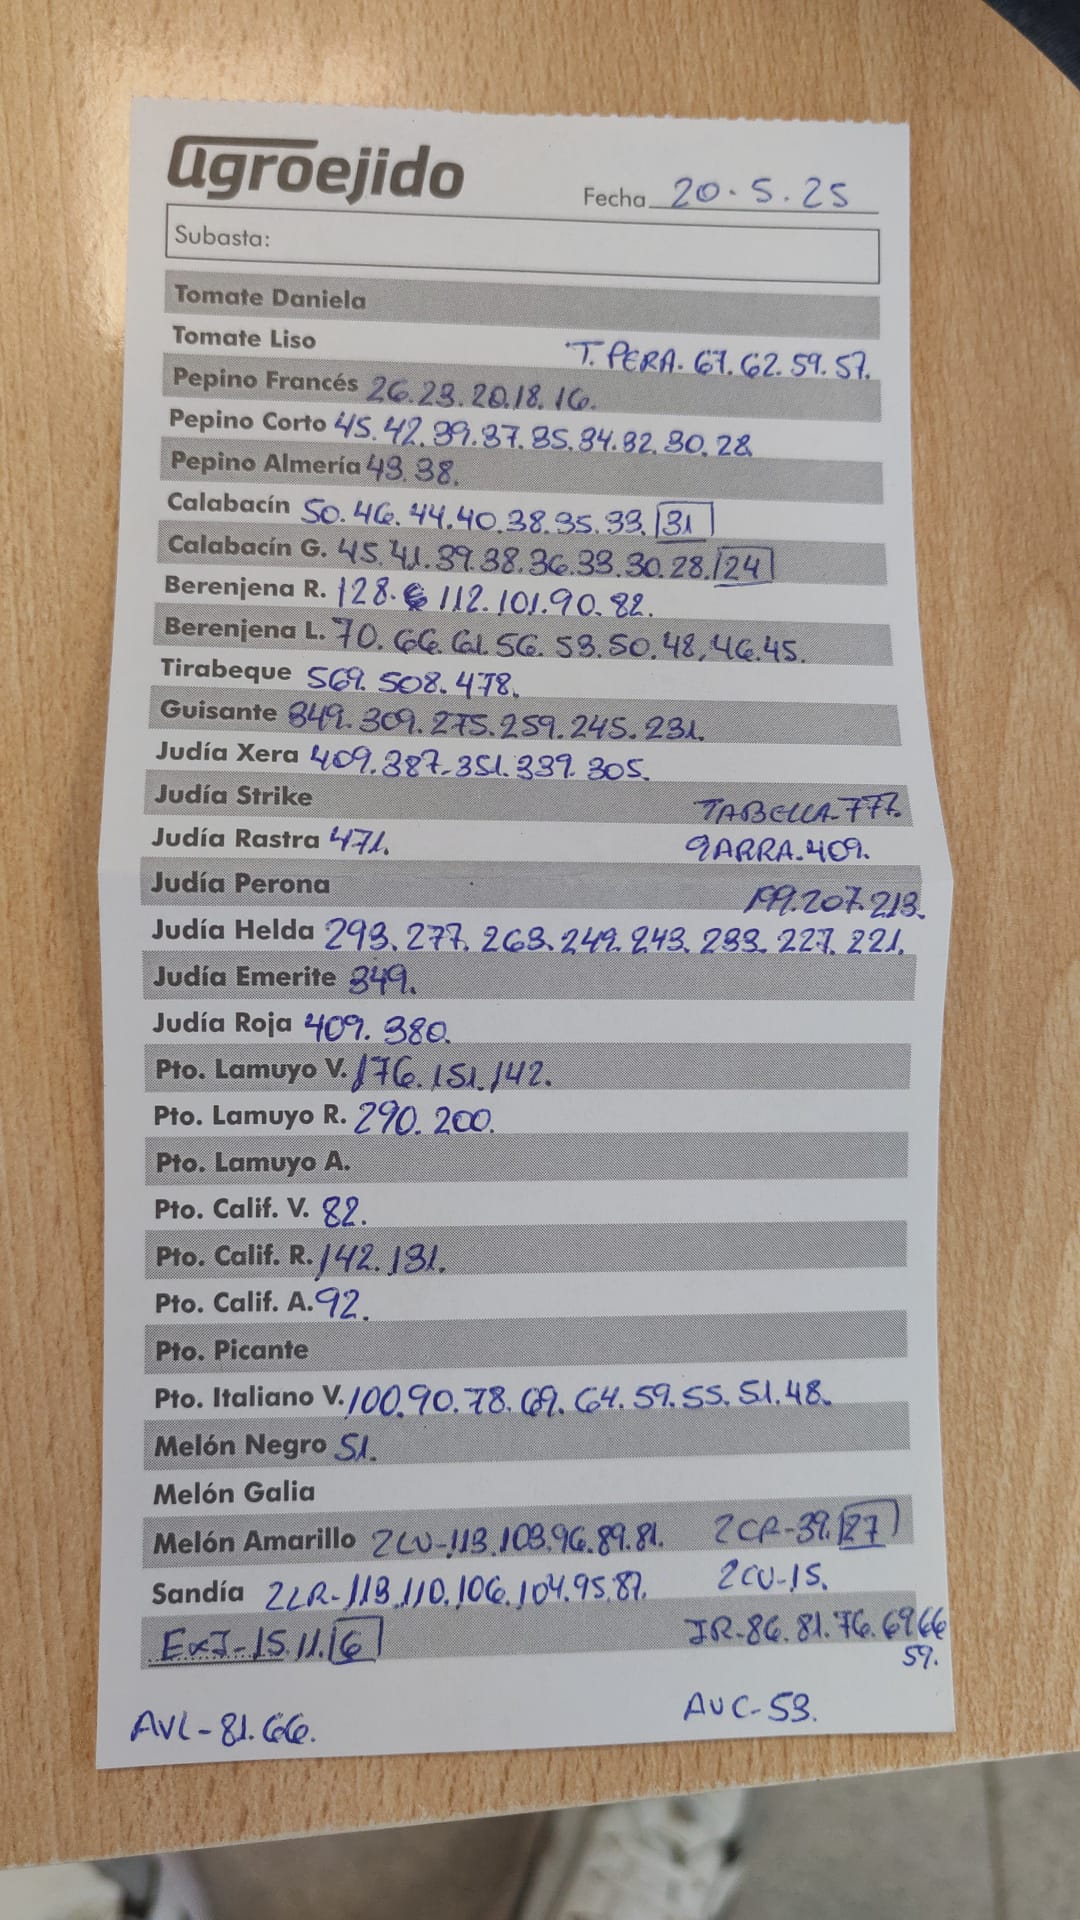 agroejido
Fecha 20.5.25
Subasta:
Tomate Daniela
Tomate Liso T. PERA. 67. 62. 59. 57.
Pepino Francés 26. 23. 20. 18. 16.
Pepino Corto 45. 42. 39. 37. 35. 34. 32. 30. 28.
Pepino Almería 43. 38.
Calabacín 50. 46. 44. 40. 38. 35. 33. 31
Calabacín G. 45. 41. 39. 38. 36. 33. 30. 28. 24
Berenjena R. 128. 112. 101. 90. 82.
Berenjena L. 70. 66. 61. 56. 53. 50. 48, 46. 45.
Tirabeque 569. 508. 478.
Guisante 349. 309. 275. 259. 245. 231.
Judía Xera 409. 387. 351. 339. 305.
Judía Strike TABELLA-777.
Judía Rastra 471. GARRA. 409.
Judía Perona 199. 207. 213.
Judía Helda 293. 277. 263. 249. 243. 233. 227. 221.
Judía Emerite 349.
Judía Roja 409. 380.
Pto. Lamuyo V. 176. 151. 142.
Pto. Lamuyo R. 290. 200.
Pto. Lamuyo A.
Pto. Calif. V. 82.
Pto. Calif. R. 142. 131.
Pto. Calif. A. 92.
Pto. Picante
Pto. Italiano V. 100. 90. 78. 69. 64. 59. 55. 51. 48.
Melón Negro 51.
Melón Galia
Melón Amarillo 2LU-113. 103. 96. 89. 81. 2CR-39. 27
Sandía 2LR-113. 110. 106. 104. 95. 87. 2CU-15.
ExJ-15. 11. 6 JR-86. 81. 76. 69 66
59.
AVL-81. 66. AUC-53.